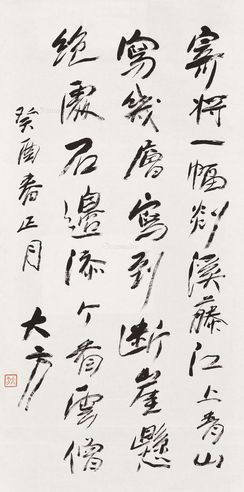 寄將一幅剡溪藤江上青山
寫幾層寫到断崖懸
絕處石邊添个看雲僧
癸酉春正月
大方